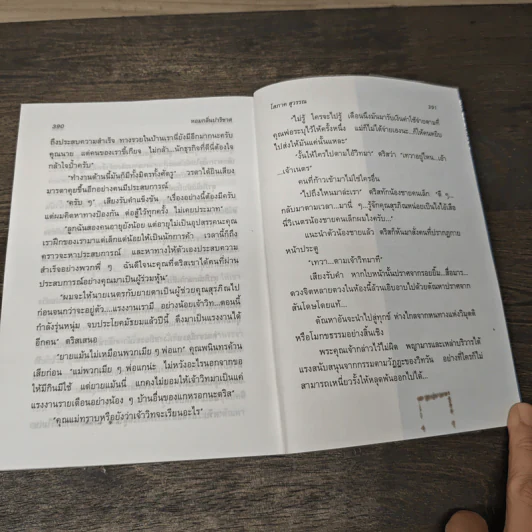 390 หอมกลิ่นปาริชาต
ถึงประสบความสำเร็จ ทางรวยในบ้านเรานี่ยังมีอีกมากนะครับ
คุณนาย แต่คนของเราขี้เกียจ ไม่กล้า...นักธุรกิจที่ดีนี่ต้องใจ
กล้าใจบ้าครับ"
"ทำงานด้านนี้มันก็มีทั้งมิตรทั้งศัตรู" วรดาได้ยินเสียง
มารดาคุยขึ้นอีกอย่างคนมีประสบการณ์
"ครับ ๆ" เสียงรับคำแข็งขัน "เรื่องอย่างนี้ต้องมีครับ
แต่ผมคิดหาทางป้องกัน ต่อสู้ไว้ทุกครั้ง ไม่เคยประมาท"
"ลูกฉันสองคนอายุยังน้อย แต่อายุไม่เป็นอุปสรรคนะคุณ
เราฝึกของเรามาแต่เล็กแต่น้อยให้เป็นนักการค้า เวลานี้ก็ถึง
คราวจะหาประสบการณ์ และหาทางให้ตัวเองประสบความ
สำเร็จอย่างพวกพี่ ๆ ฉันดีใจนะคุณที่ตริสเขาได้คนที่ผ่าน
ประสบการณ์อย่างคุณมาเป็นผู้ร่วมหุ้น"
"ผมจะให้นายเนตรกับยายตาเป็นผู้ช่วยคุณสุรภิณไป
ก่อนจนกว่าจะอยู่ตัว...แรงงานเรามี อย่างน้อยเจ้าวิท...ตอนนี้
กำลังรุ่นหนุ่ม จบประโยคมัธยมแล้วปีนี้ ดึงมาเป็นแรงงานได้
อีกคน" ตริสเสนอ
"ยายแม้นไม่เหมือนพวกเมีย ๆ พ่อแก" คุณพนิทรค้าน
เสียก่อน "แม่พวกเมีย ๆ พ่อแกน่ะ ไม่หวังอะไรนอกจากขอ
ให้มีกินมีใช้ แต่ยายแม้นนี่ แกคงไม่ยอมให้เจ้าวิทมาเป็นแค่
แรงงานรายเดือนอย่างน้อง ๆ บ้านอื่นของแกหรอกนะตริส"
"คุณแม่ทราบหรือยังว่าเจ้าวิทจะเรียนอะไร"
โสภาค สุวรรณ 391
"ไม่รู้ ใครจะไปรู้ เดือนนึงมันมารับเงินค่าใช้จ่ายตามที่
คุณพ่อระบุไว้ให้ครั้งหนึ่ง แม่ก็ไม่ได้จ่ายเองนะ...ก็ให้คนหยิบ
ไปส่งให้มันแค่นั้นแหละ"
"งั้นให้ใครไปตามไอ้วิทมา" ตริสว่า "เทวาอยู่ไหน...เจ้า
...เจ้าเนตร"
คนที่ก้าวเข้ามาไม่ใช่ใครอื่น
"ไปถึงไหนมาล่ะเรา" ตริสทักน้องชายคนเล็ก
กลับมาตามเวลา...มานี่ ๆ...รู้จักคุณสุรภิณหน่อยเป็นไงไอ้เสือ
นี่วิเนตรน้องชายคนเล็กผมไงครับ..."
แนะนำตัวน้องชายแล้ว ตริสก็หันมาสั่งคนที่ปรากฏกาย
หน้าประตู
"เทวา...ตามเจ้าวิทมาที"
เสียงรับคำ หากใบหน้านั้นปราศจากรอยยิ้ม...สื่อมาร...
ดวงจิตหลายดวงในห้องนี้ล้วนเอิบอาบไปด้วยตัณหาปราศจาก
สันโดษโดยแท้...
ตัณหาอันจะนำไปสู่ทุกข์ ห่างไกลจากหนทางแห่งวิมุตติ
หรือโมกขธรรมอย่างสิ้นเชิง
พระคุณเจ้ากล่าวไว้ไม่ผิด พญามารและเหล่าบริวารได้
แรงสนับสนุนจากกรรมตามวัฏฏะของวิทวัน อย่างที่ใครก็ไม่
สามารถเหนี่ยวรั้งให้หลุดพ้นออกไปได้...